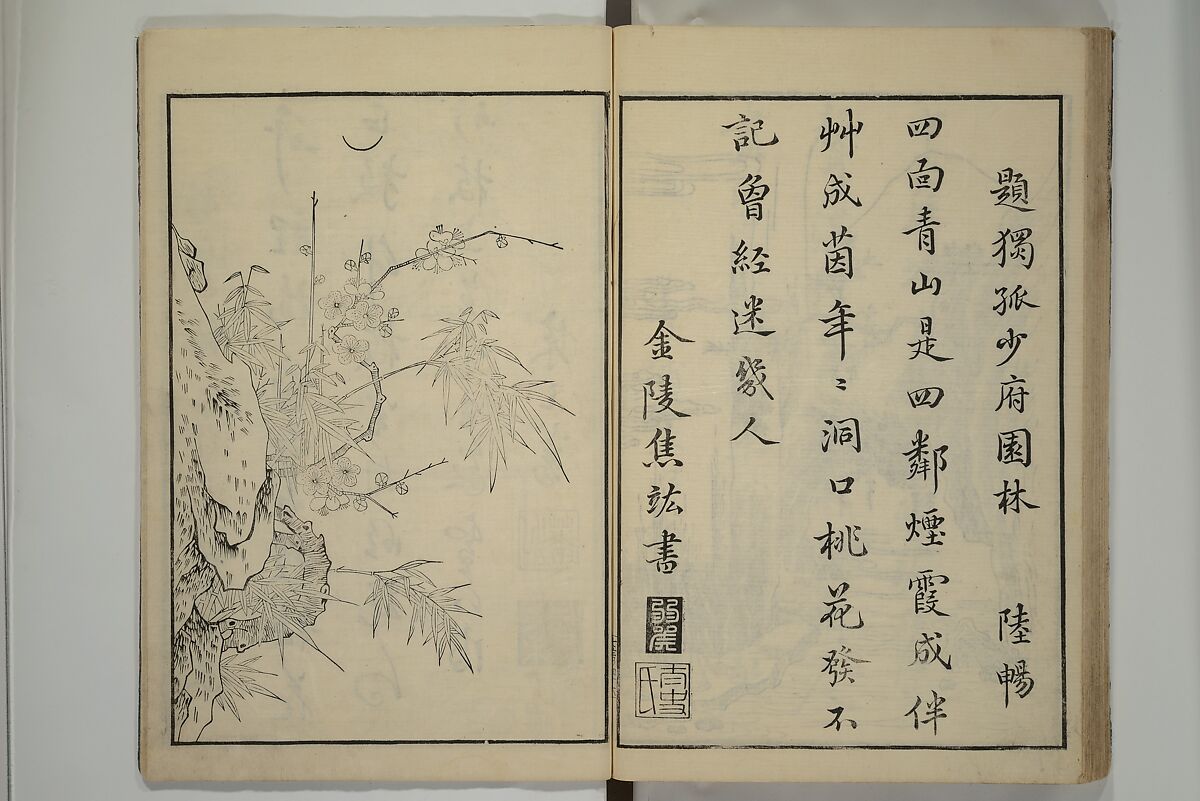 題獨孤少府園林　陸暢
四面青山是四鄰煙霞成伴
艸成茵年〻洞口桃花發不
記曾經迷幾人
金陵焦竑書
弱侯